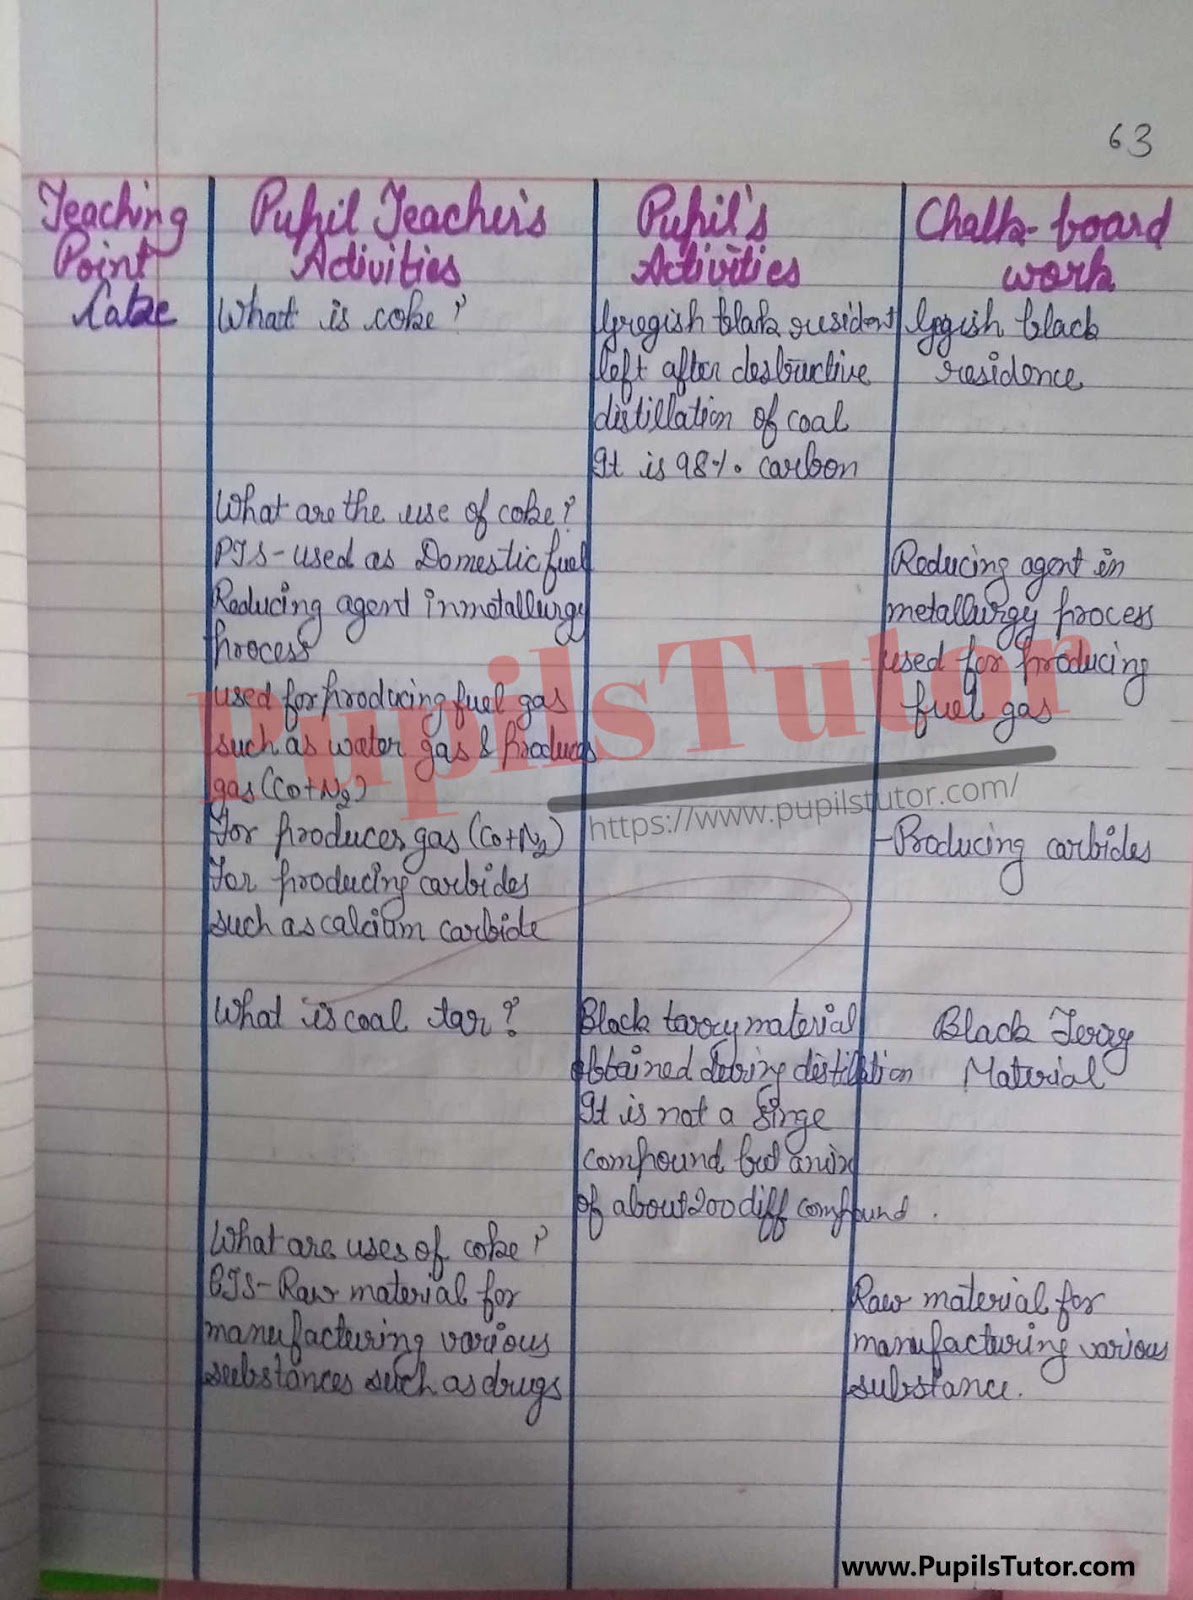 63
Teaching
Point
Pupil Teacher's
Activities
Pupil's
Activities
Chalk-board
work
Cake
What is coke?
Greyish black resident
left after destructive
distillation of coal
It is 98% carbon
black
residence
What are the use of coke?
PTS-used as Domestic fuel
Reducing agent in metallurgy
process
used for producing fuel gas
such as water gas & produces
gas (Co+N2)
For producer gas (Co+N2)
For producing carbides
such as calcium carbide
Reducing agent in
metallurgy process
used for producing
fuel gas
-Producing carbides
What is coal tar?
Black tarry material
obtained during distillation
It is not a singe
compound but a mix
of about 200 diff compound.
Black Terry
Material
What are uses of coke?
PTS-Raw material for
manufacturing various
substances such as drugs
Raw material for
manufacturing various
substance.
PupilsTutor
https://www.pupilstutor.com/
www.PupilsTutor.com